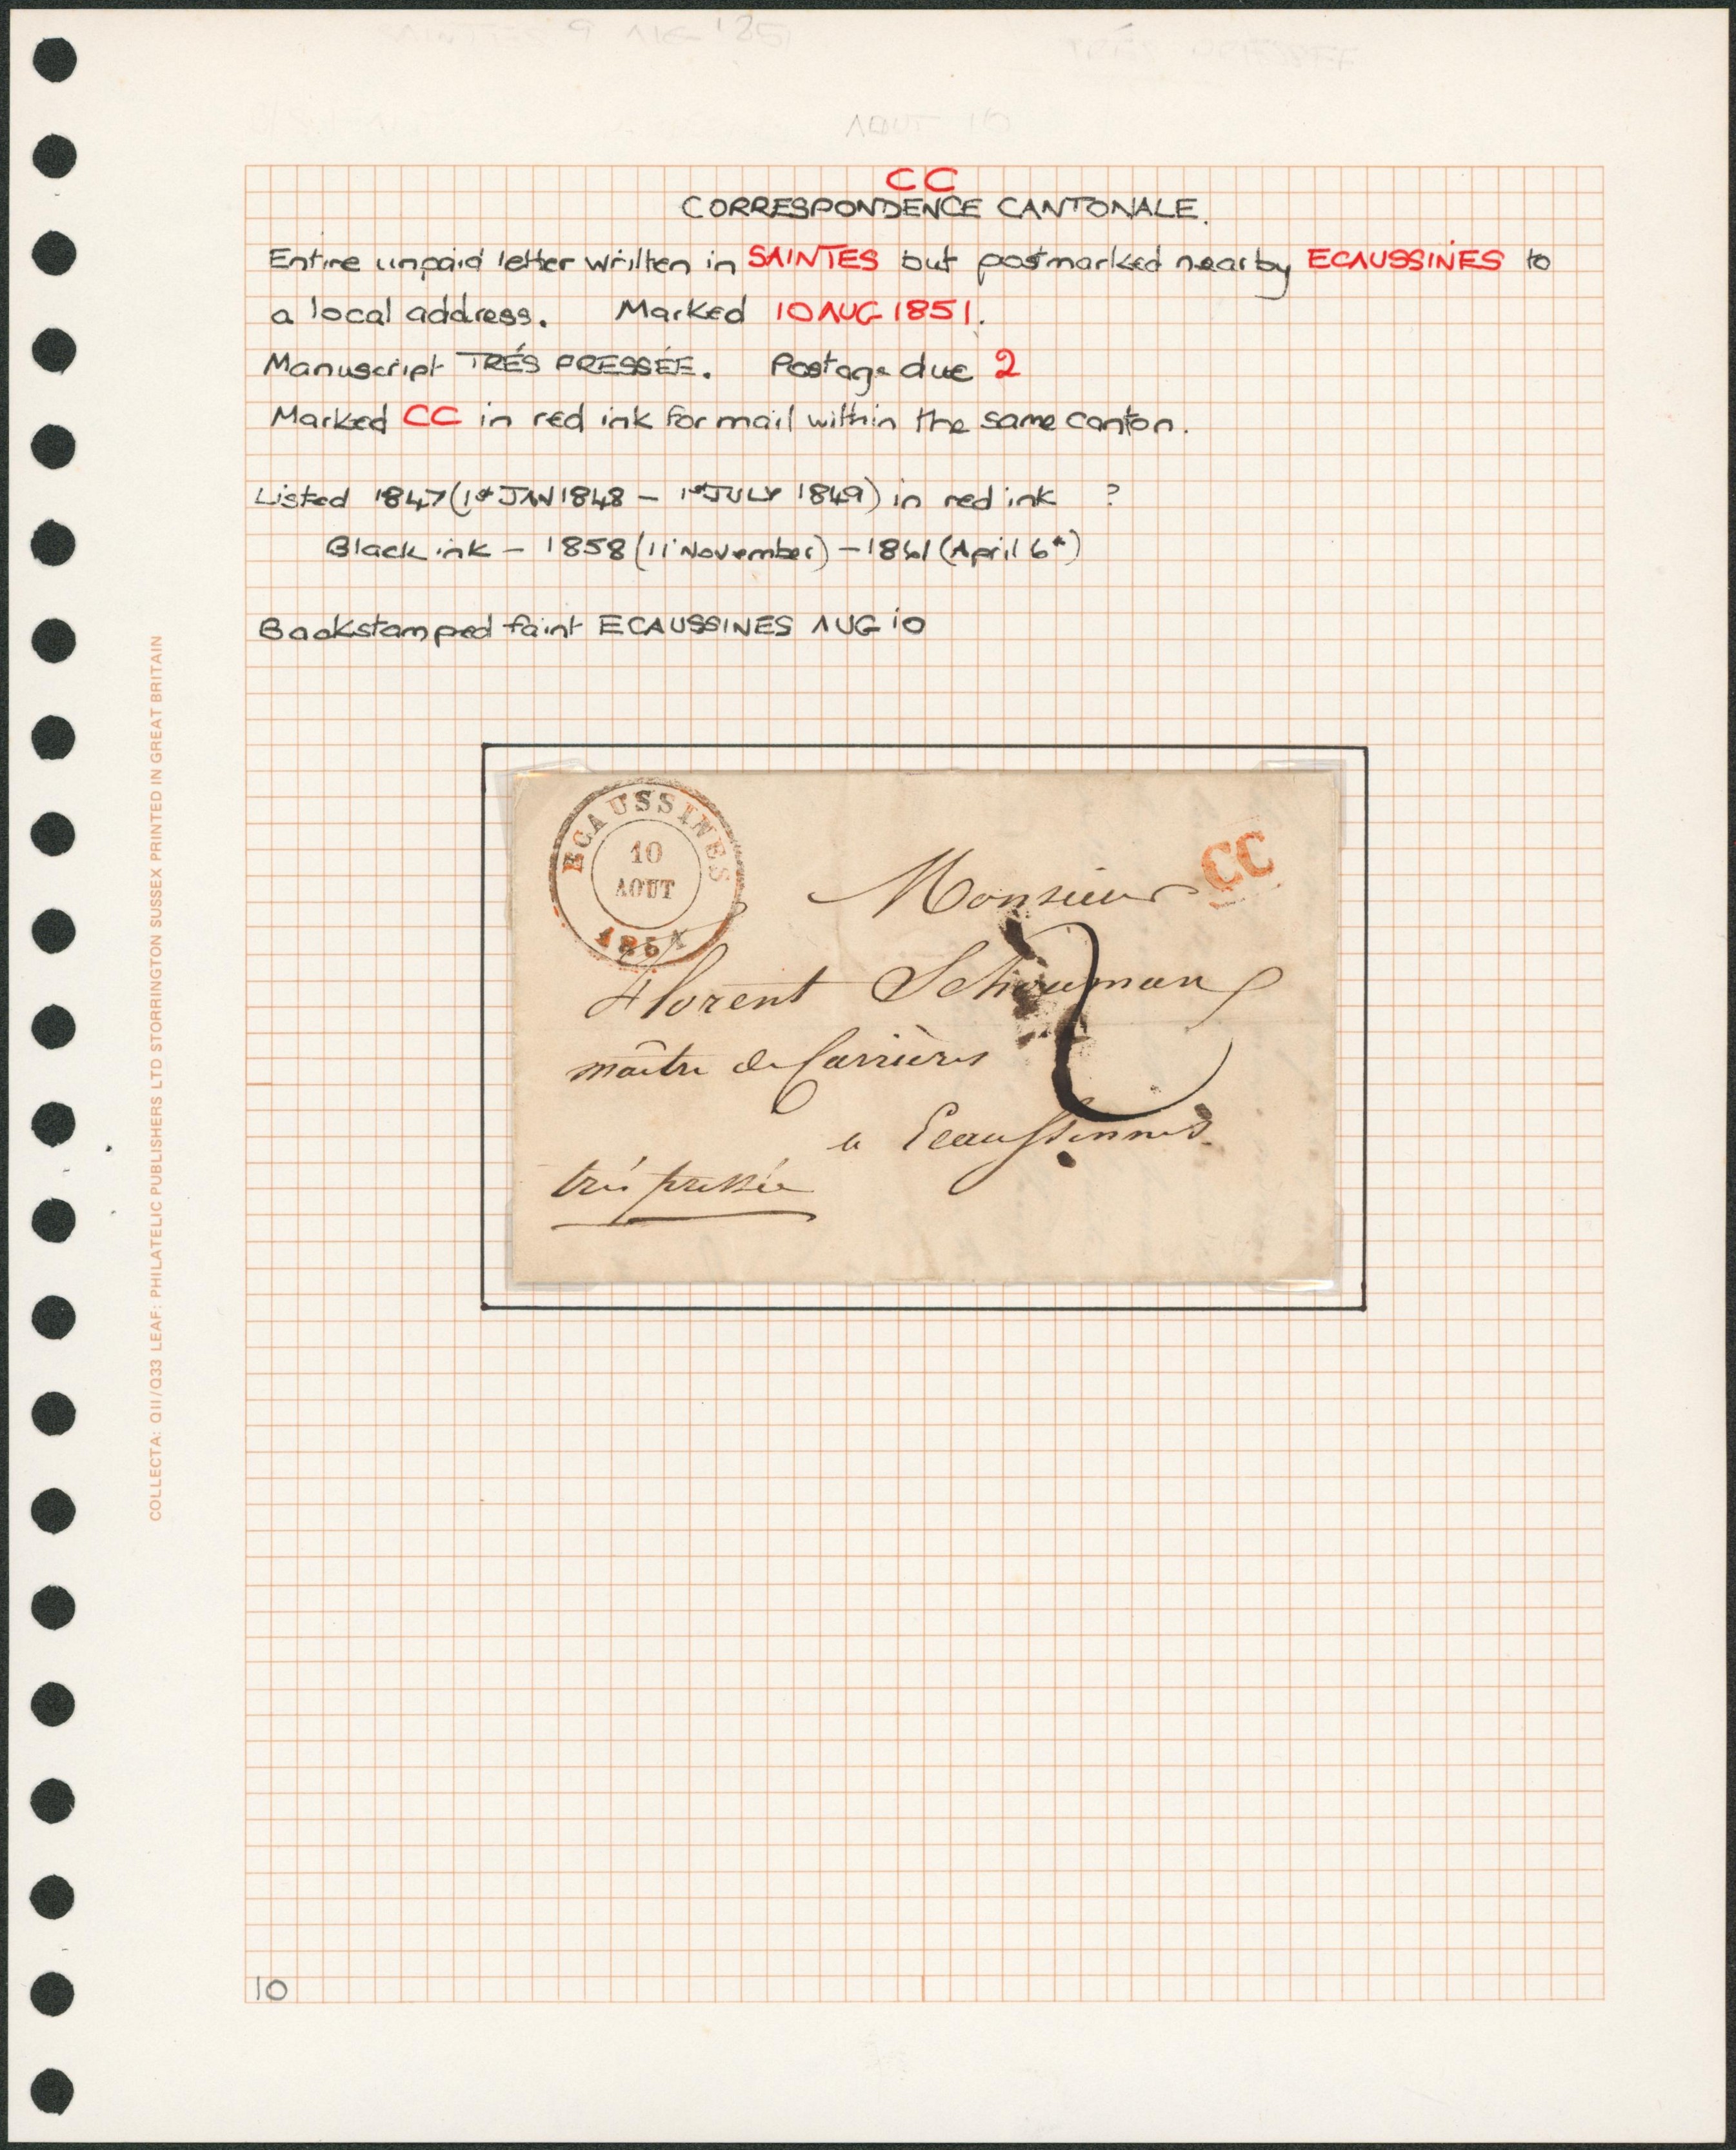 SAINTES 9 AUG '251
TRÉS PRESSÉE
AOUT 10
CC
CORRESPONDENCE CANTONALE.
Entire unpaid letter written in SAINTES but postmarked nearby ECAUSSINES to
a local address. Marked 10 AUG 1851.
Manuscript TRÉS PRESSÉE. Postage due 2
Marked CC in red ink for mail within the same canton.
Listed 1847 (1st JAN 1848 - 1st JULY 1849) in red ink ?
Black ink - 1858 (11 November) - 1861 (April 6th)
Backstamped faint ECAUSSINES AUG 10
COLLECTA: Q11/Q33 LEAF: PHILATELIC PUBLISHERS LTD STORRINGTON SUSSEX PRINTED IN GREAT BRITAIN
ECAUSSINES
10
AOUT
1851
CC
Monsieur
2
Florent Schouman
maître de Carrières
a Ecaussinnes.
trés pressée
10